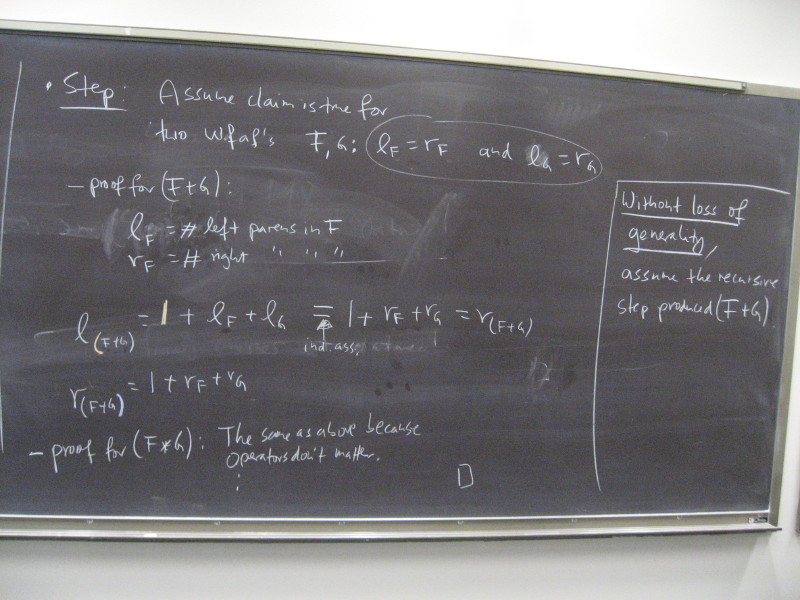 • Step: Assume claim is true for
two wffaf's F, G: ℓ_F = r_F and ℓ_G = r_G
– proof for (F+G):
ℓ_F = # left parens in F
r_F = # right " " "
ℓ_(F+G) = 1 + ℓ_F + ℓ_G = 1 + r_F + r_G = r_(F+G)
ind. ass.
r_(F+G) = 1 + r_F + r_G
– proof for (F*G): The same as above because
operators don't matter.
⋮ □
Without loss of
generality,
assume the recursive
step produced (F+G)